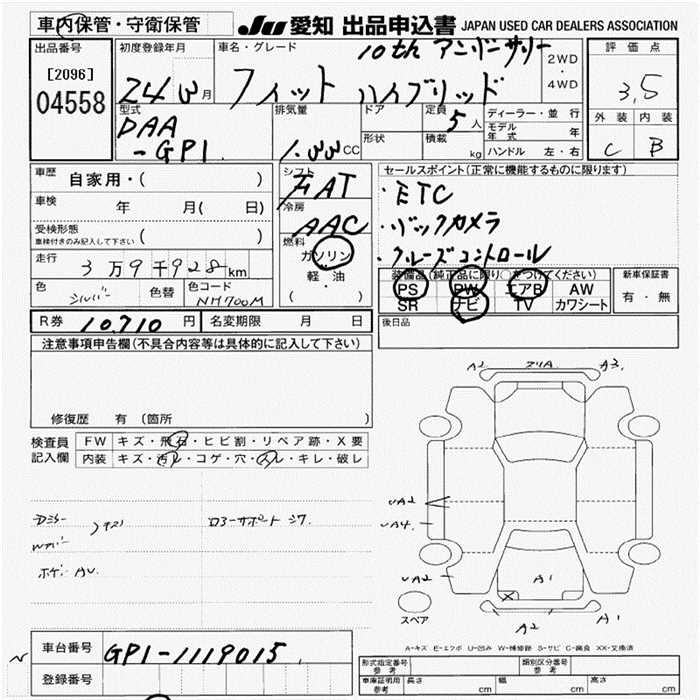 車内保管・守衛保管
JU 愛知 出品申込書 JAPAN USED CAR DEALERS ASSOCIATION
出品番号
[2096]
04558
初度登録年月
24 3月
車名・グレード
10th アニバーサリー
フィット ハイブリッド
2WD
・
4WD
評価点
3.5
外装 内装
C B
型式
DAA
-GP1
排気量
1.33CC
ドア
形状
定員
5人
積載
kg
ディーラー・並行
モデル年式 年
ハンドル 左・右
車歴 自家用・( )
車検 年 月( 日)
受検形態
車検付きのみ記入して下さい ( )
走行 3万9千928km
色 シルバー 色替 色コード NH700M
シフト
FAT
冷房
AAC
燃料
ガソリン
軽・油
( )
セールスポイント(正常に機能するものに限ります)
・ETC
・バックカメラ
・クルーズコントロール
装備品(純正品に限り○をつけてください)
PS PW エアB AW
SR ナビ TV カワシート
新車保証書
有・無
後日品
R券 10,710円 名変期限 月 日
注意事項申告欄(不具合内容等は具体的に記入して下さい)
修復歴 有(箇所
検査員
記入欄
FW キズ・飛石・ヒビ割・リペア跡・X要
内装 キズ・汚れ・コゲ・穴・スレ・キレ・破レ
A2 A3
UA2
UA4
UA2
A1
X
A2 A1
スペア
A-キズ E-エクボ U-凹み W-補修跡 S-サビ C-腐食 XX-交換済
車台番号 GP1-1119015
登録番号
形式指定番号
参考
類別区分番号
参考
車庫証明用
参考
長さ cm
幅 cm
高さ cm